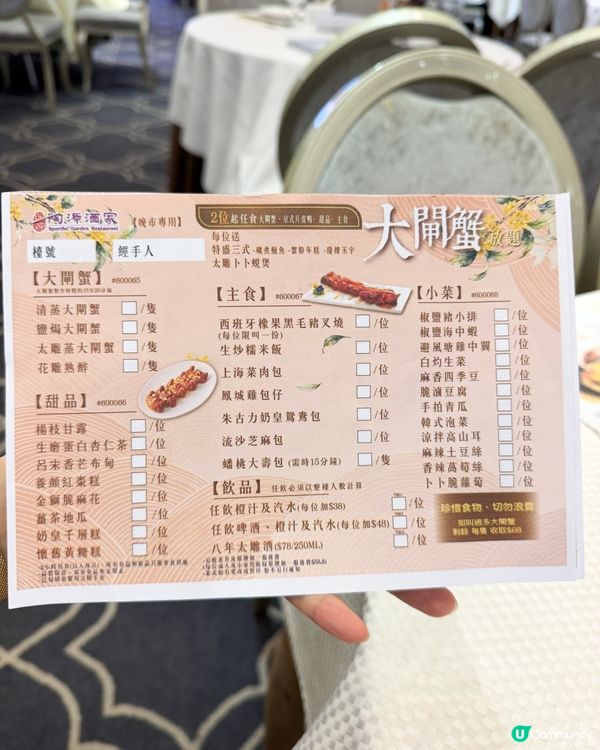 陶源酒家
Sportful Garden Restaurant
【晚市專用】
2位起任食大閘蟹、京式片皮鴨、甜品、主食
每位送
特盛三式 - 磯煮鮑魚、蟹粉年糕、瓊樓玉宇
太雕卜卜蜆煲
大閘蟹放題
檯號
經手人
【大閘蟹】 #600065
清蒸大閘蟹 /隻
鹽焗大閘蟹 /隻
太雕蒸大閘蟹 /隻
花雕熟醉 /隻
【甜品】 #600066
楊枝甘露 /位
生磨蛋白杏仁茶 /位
呂宋香芒布甸 /位
養顏紅棗糕 /位
金獅脆麻花 /位
薑茶地瓜 /位
奶皇千層糕 /位
懷舊黃糖糕 /位
【主食】 #600067
西班牙橡果黑毛豬叉燒 /位
(每位限叫一份)
生炒糯米飯 /位
上海菜肉包 /位
鳳城雞包仔 /位
朱古力奶皇鴛鴦包 /位
流沙芝麻包 /位
蟠桃大壽包 (需時15分鐘) /隻
【飲品】 任飲必須以整檯人數計算
任飲橙汁及汽水(每位加$38) /位
任飲啤酒、橙汁及汽水(每位加$48) /位
八年太雕酒($78/250ML) /位
【小菜】 #600068
椒鹽豬小排 /位
椒鹽海中蝦 /位
避風塘雞中翼 /位
白灼生菜 /位
麻香四季豆 /位
脆滷豆腐 /位
手拍青瓜 /位
韓式泡菜 /位
涼拌高山耳 /位
麻辣土豆絲 /位
香辣萵筍絲 /位
卜卜脆蘿蔔 /位
珍惜食物、切勿浪費
如叫過多大閘蟹
剩餘 每隻 收取$68
U Community